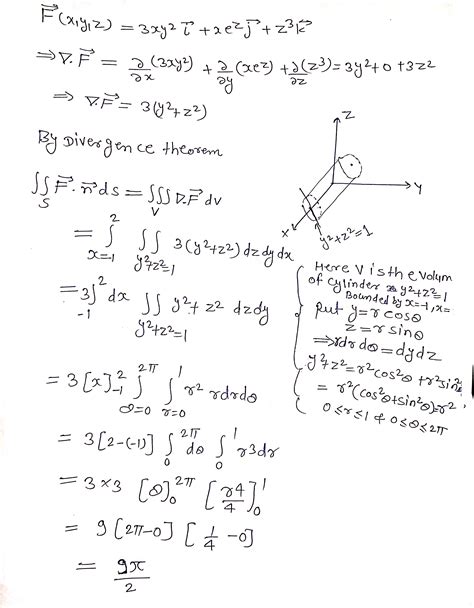 F⃗(x,y,z) = 3xy² i⃗ + xe^z j⃗ + z³ k⃗
⇒ ∇.F⃗ = ∂/∂x (3xy²) + ∂/∂y (xe^z) + ∂/∂z (z³) = 3y²+0+3z²
⇒ ∇.F⃗ = 3(y²+z²)
By Divergence theorem
∬_S F⃗.n⃗ ds = ∭_V ∇.F⃗ dv
= ∫_{x=-1}^{2} ∬_{y²+z²=1} 3(y²+z²) dz dy dx
= 3∫_{-1}^{2} dx ∬_{y²+z²=1} y²+z² dz dy
= 3[x]_{-1}^{2} ∫_{θ=0}^{2π} ∫_{r=0}^{1} r² r dr dθ
= 3[2-(-1)] ∫_0^{2π} dθ ∫_0^1 r³ dr
= 3×3 [θ]_0^{2π} [r⁴/4]_0^1
= 9 [2π-0] [1/4 - 0]
= 9π/2
Z
Y
X
y²+z²=1
Here V is the volum
of cylinder y²+z²=1
Bounded by x=-1, x=
Put y=r cosθ
z=r sinθ
⇒ r dr dθ = dy dz
y²+z² = r²cos²θ + r²sin²
= r²(cos²θ+sin²θ)=r²
0≤r≤1 & 0≤θ≤2π